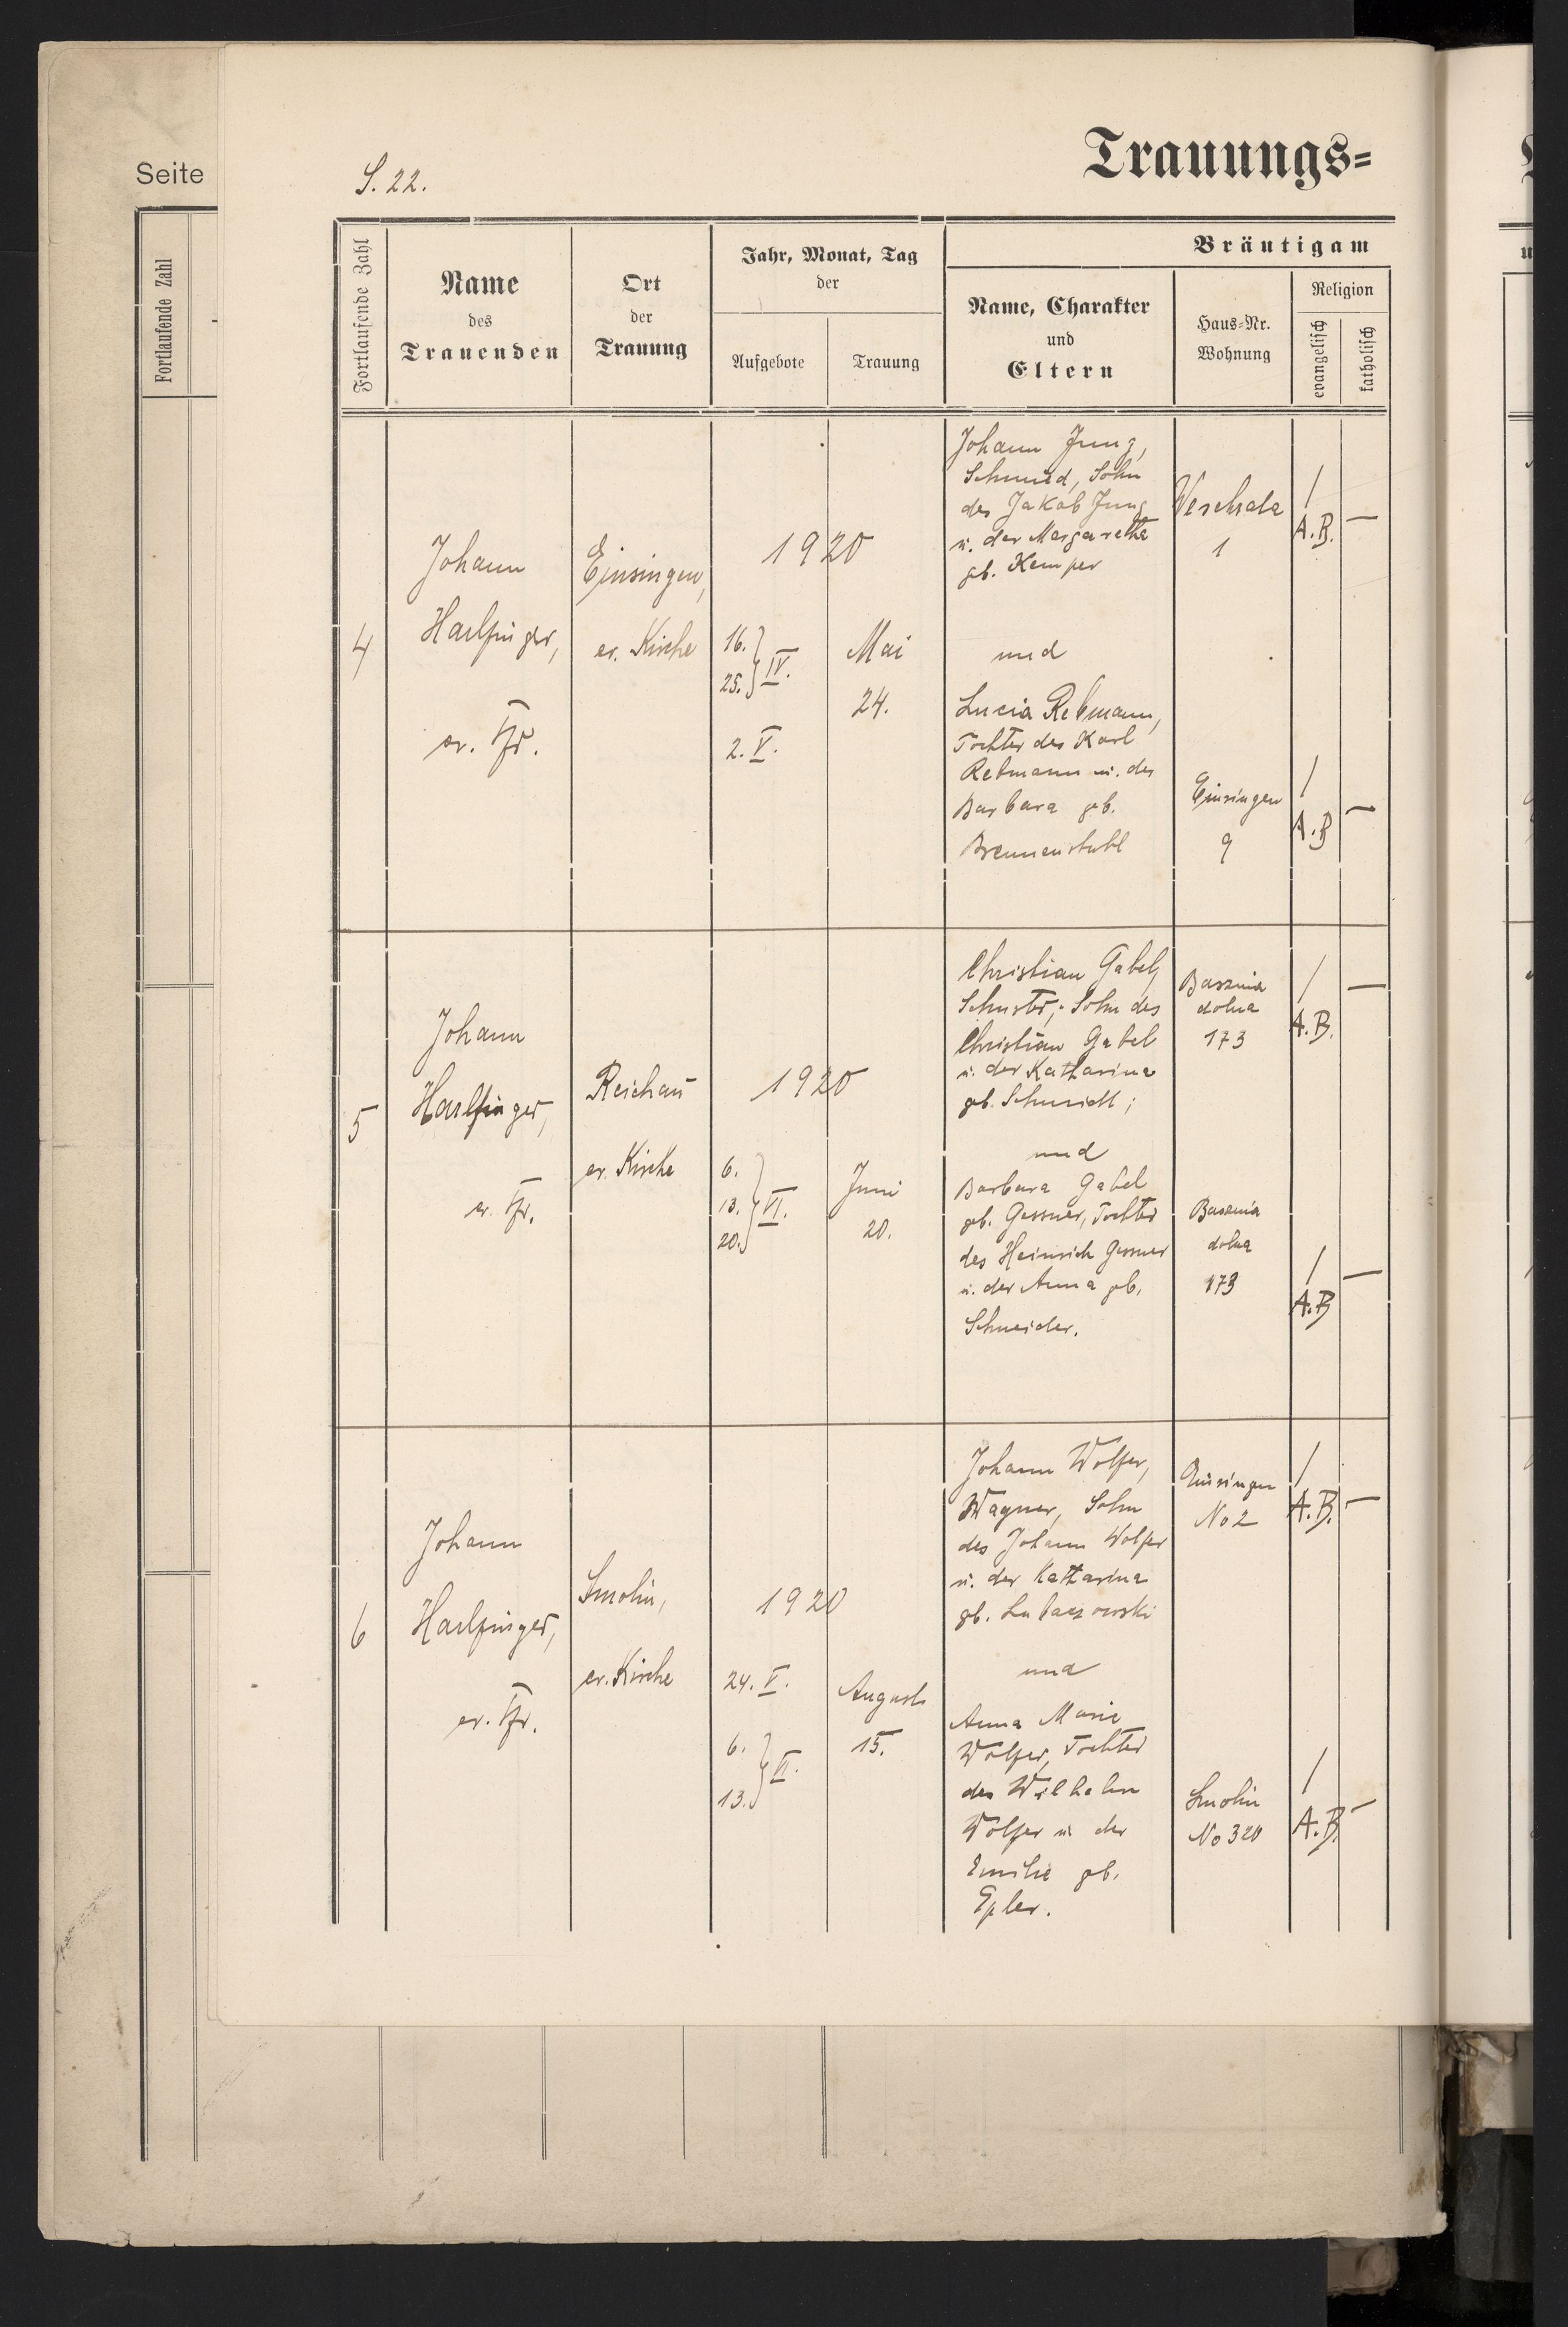 Seite
Fortlaufende Zahl
S. 22.
Trauungs=
Fortlaufende Zahl
Name
des
Trauenden
Ort
der
Trauung
Jahr, Monat, Tag
der
Aufgebote
Trauung
Bräutigam
Name, Charakter
und
Eltern
Haus=Nr.
Wohnung
Religion
evangelisch
katholisch
4
Johann
Harlfinger,
ev. Pfr.
Einsingen,
ev. Kirche
1920
16.
25. } IV.
2. V.
Mai
24.
Johann Jung,
Schmied, Sohn
des Jakob Jung
u. der Margarethe
gb. Kemper
1
/
A.B.
—
und
Lucia Rebmann,
Tochter des Karl
Rebmann u. der
Barbara geb.
Brennenstuhl
Einsingen
9
/
A.B
—
5
Johann
Harlfinger,
ev. Pfr.
Reichau
ev. Kirche
1920
6.
13. } VI.
20.
Juni
20.
Christian Gabel,
Schuster, Sohn des
Christian Gabel
u. der Katharina
gb. Schmidt;
Basznia
dolna
173
/
A.B.
—
und
Barbara Gabel
gb. Gessner, Tochter
des Heinrich Gessner
u. der Anna gb.
Schneider.
Basznia
dolna
173
/
A.B
—
6
Johann
Harlfinger,
ev. Pfr.
Smolin,
ev. Kirche
1920
24. V.
6. } VI.
13.
August
15.
Johann Wolfer,
Wagner, Sohn
des Johann Wolfer
u. der Katharina
gb. Lubaczowski
Einsingen
No 2
/
A.B.
—
und
Anna Marie
Wolfer, Tochter
des Wilhelm
Wolfer u. der
Emilie gb.
Epler.
Smolin
No 320
/
A.B.
—